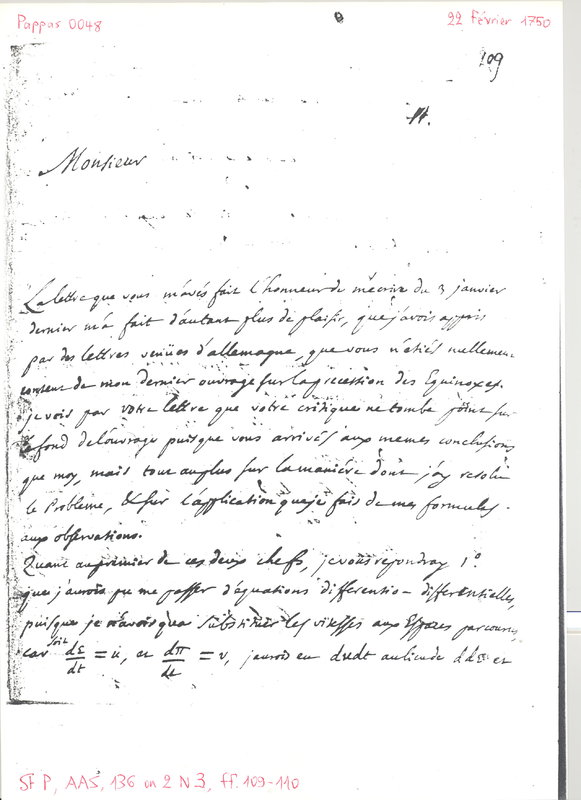 Pappas 0048
22 Février 1750
109
Monsieur
La lettre que vous m'avés fait l'honneur de m'ecrire du 3 janvier
dernier m'a fait d'autant plus de plaisir, que j'avois appris
par des lettres venües d'allemagne, que vous n'etiés nullement
content de mon dernier ouvrage sur la precession des Equinoxes.
je vois par votre lettre que votre critique ne tombe point sur
le fond de l'ouvrage puisque vous arrivés aux memes conclusions
que moy, mais tout au plus sur la maniére dont j'ay resolu
le Probleme, & sur l'application que je fais de mes formules
aux observations.
Quant au premier de ces deux chefs, je vous repondray 1º.
que j'aurois pu me passer d'équations differentio-differentielles,
puisque je n'avois qu'a substituer les vitesses aux Espaces parcourus,
car soit dε/dt = u, et dπ/dt = v, j'aurois eu du dt au lieu de ddε et
SF P, AAS, 136 on 2 N 3, ff. 109-110